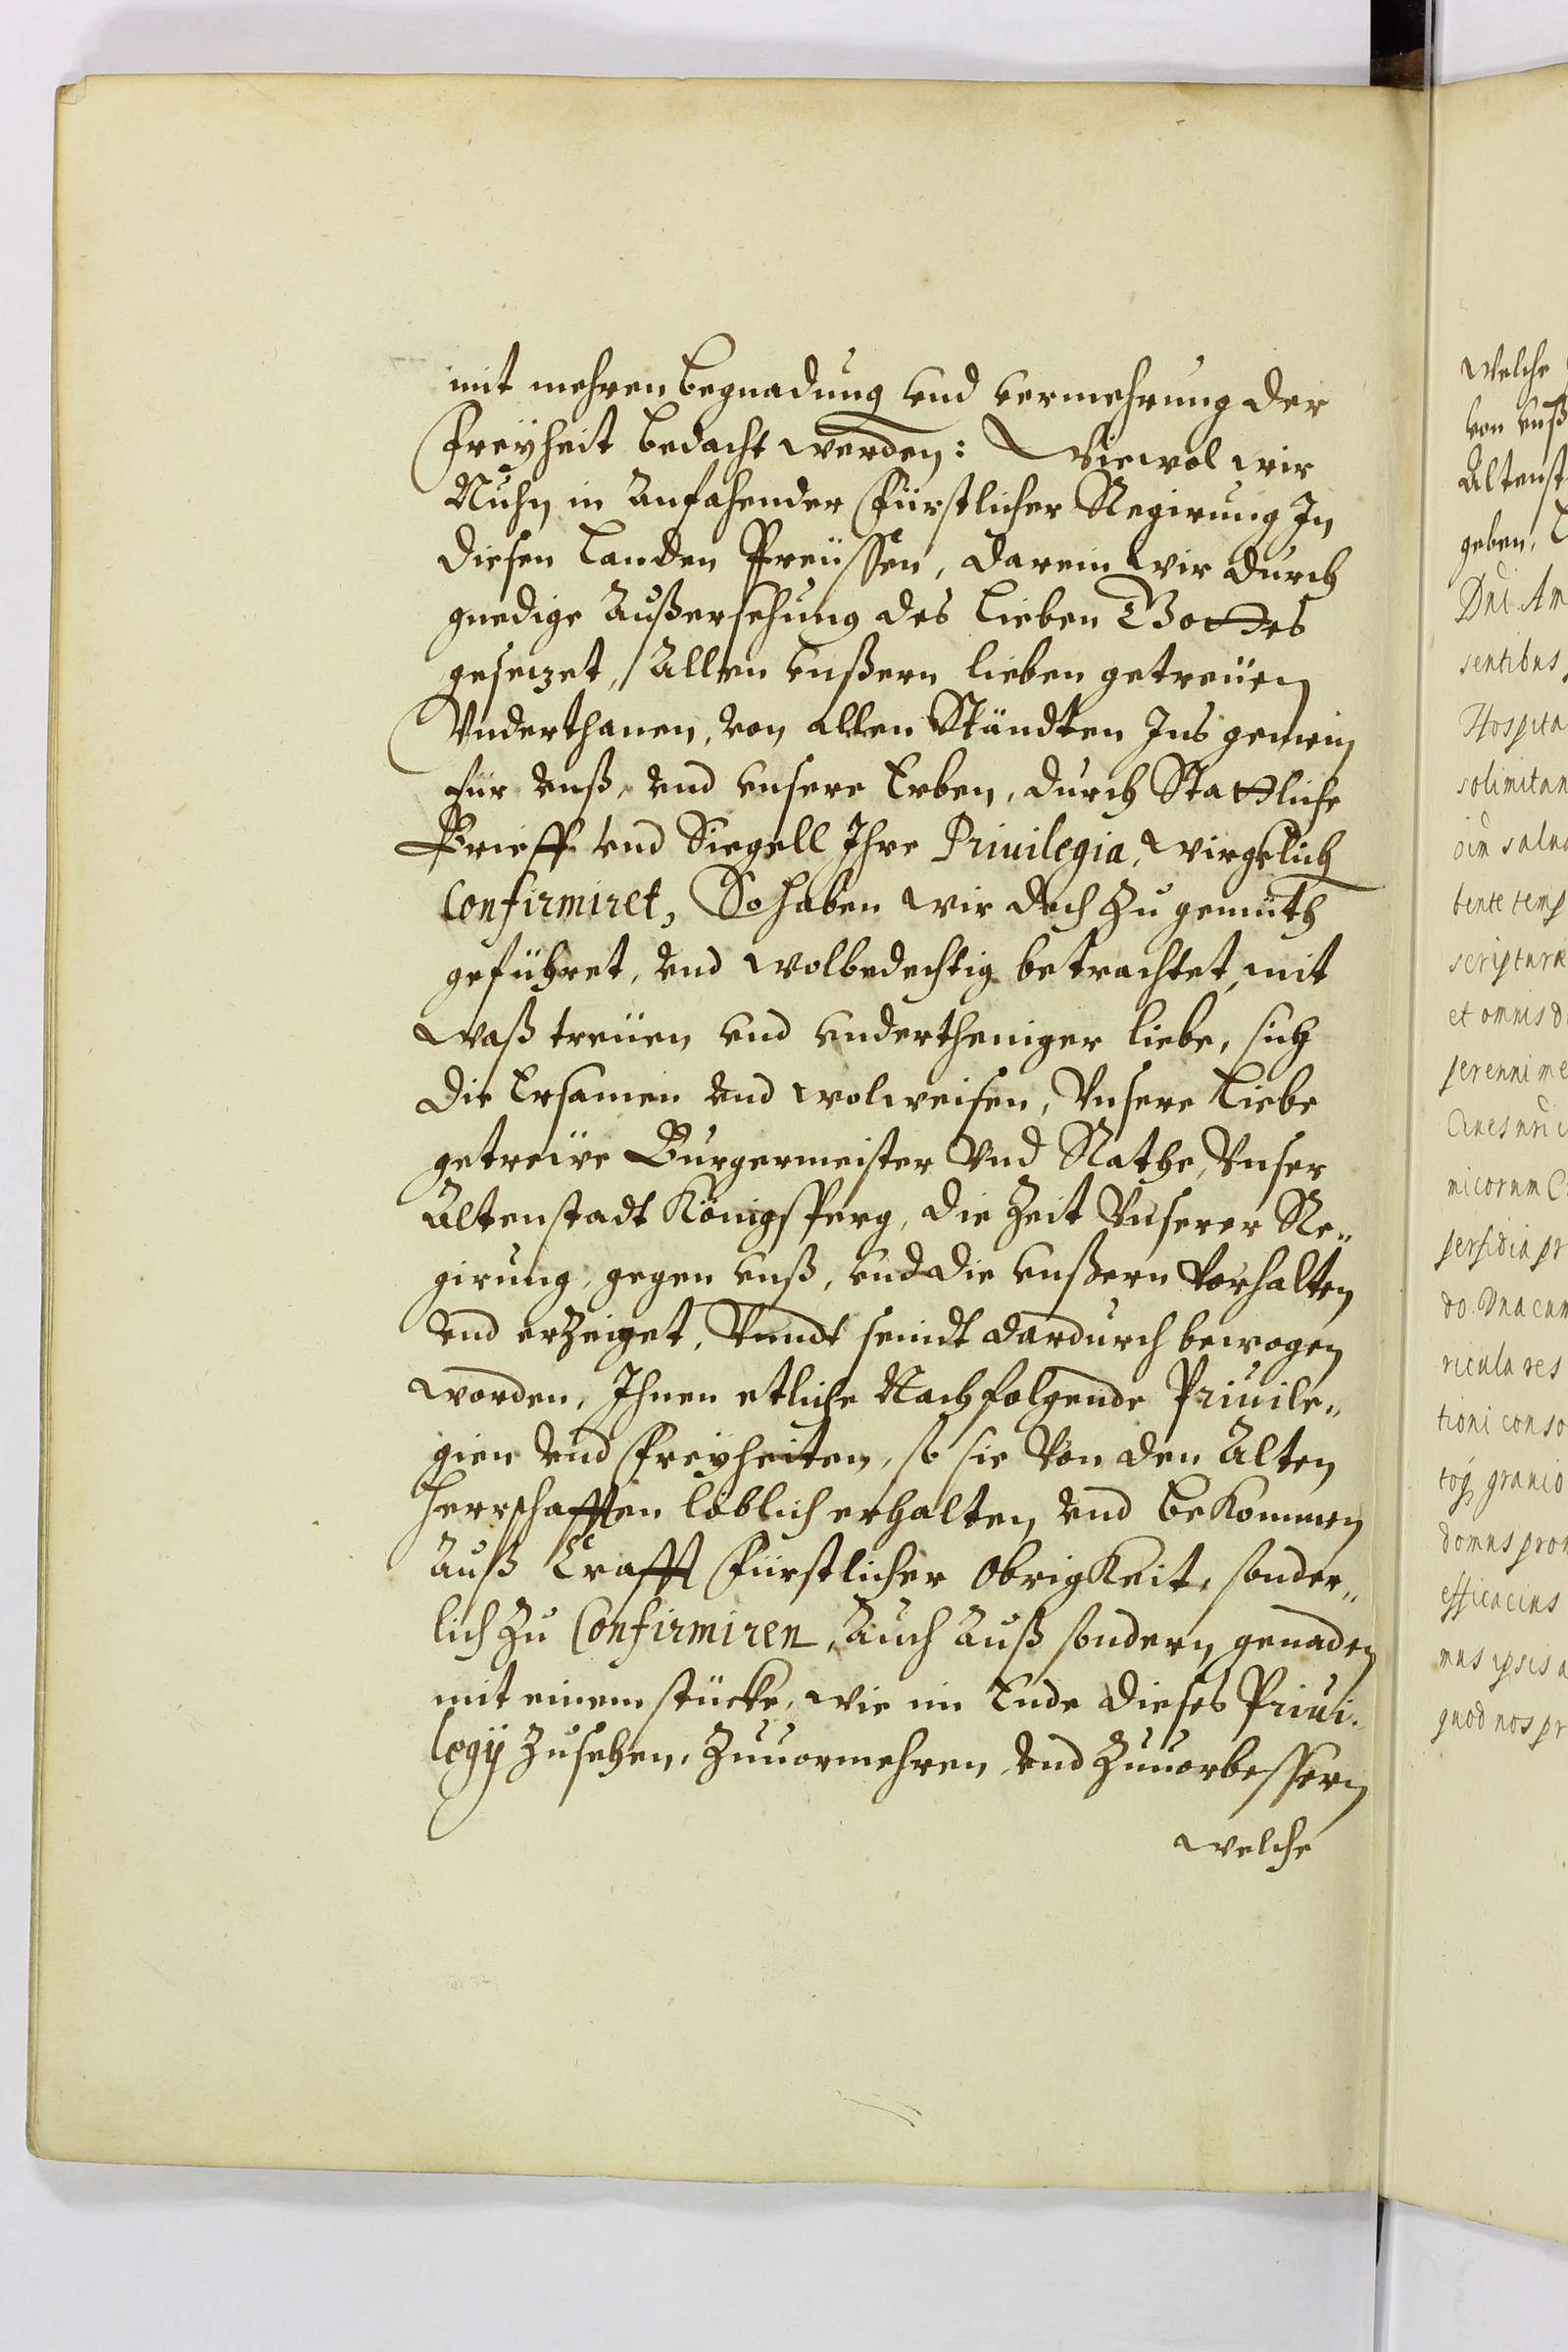 mit mehren begnadung vnd vermehrung der
Freyheit bedacht werden: Wiewol wir
Nuhn in Anfahender Fürstlicher Regirung In
diesen Landen Preüssen, darein wir durch
gnedige Außersehung des Lieben Gottes
gesetzet, Allen vnßern lieben getreüen
Vnderthanen, von allen Ständten Ins gemein
für vnß, vnd vnsere Erben, durch Stattliche
Brieff vnd Siegell Ihre Priuilegia, wirgklich
Confirmiret, So haben wir doch Zu gemüth
geführet, vnd wolbedechtig betrachtet, mit
waß treüen vnd vndertheniger liebe, sich
die Ersamen vnd wolweisen, Vnsere Liebe
getreüe Burgermeister Vnd Rathe, Vnser
Altenstadt Königsperg, die Zeit Vnserer Re„
girung, gegen vnß, vnd die vnßern Vorhalten
vnd erzeiget, Vnndt seindt dardurch bewogen
worden, Ihnen etliche Nachfolgende Priuile„
gien vnd Freyheiten, so sie Von den Alten
Herrschafften löblich erhalten, vnd beKommen
Auß Crafft Fürstlicher ObrigKeit, sonder„
lich Zu Confirmiren, Auch Auß sondern genaden
mit einem stücke, wie im Ende dieses Priui„
legij Zusehen, Zuuormehren vnd Zuuorbessern
welche
welche
von vnß
Altenst
geben,
Dni. Am
sentibus
Hospita
solimitan
oim salua
bente temp
scripturæ
et omnis
perenni me
Ciues nri
micorum
perfidia pr
do. Vna cum
ricula res
tioni conso
granio
domus prom
efficacius
mus ipsis a
quod nos pr